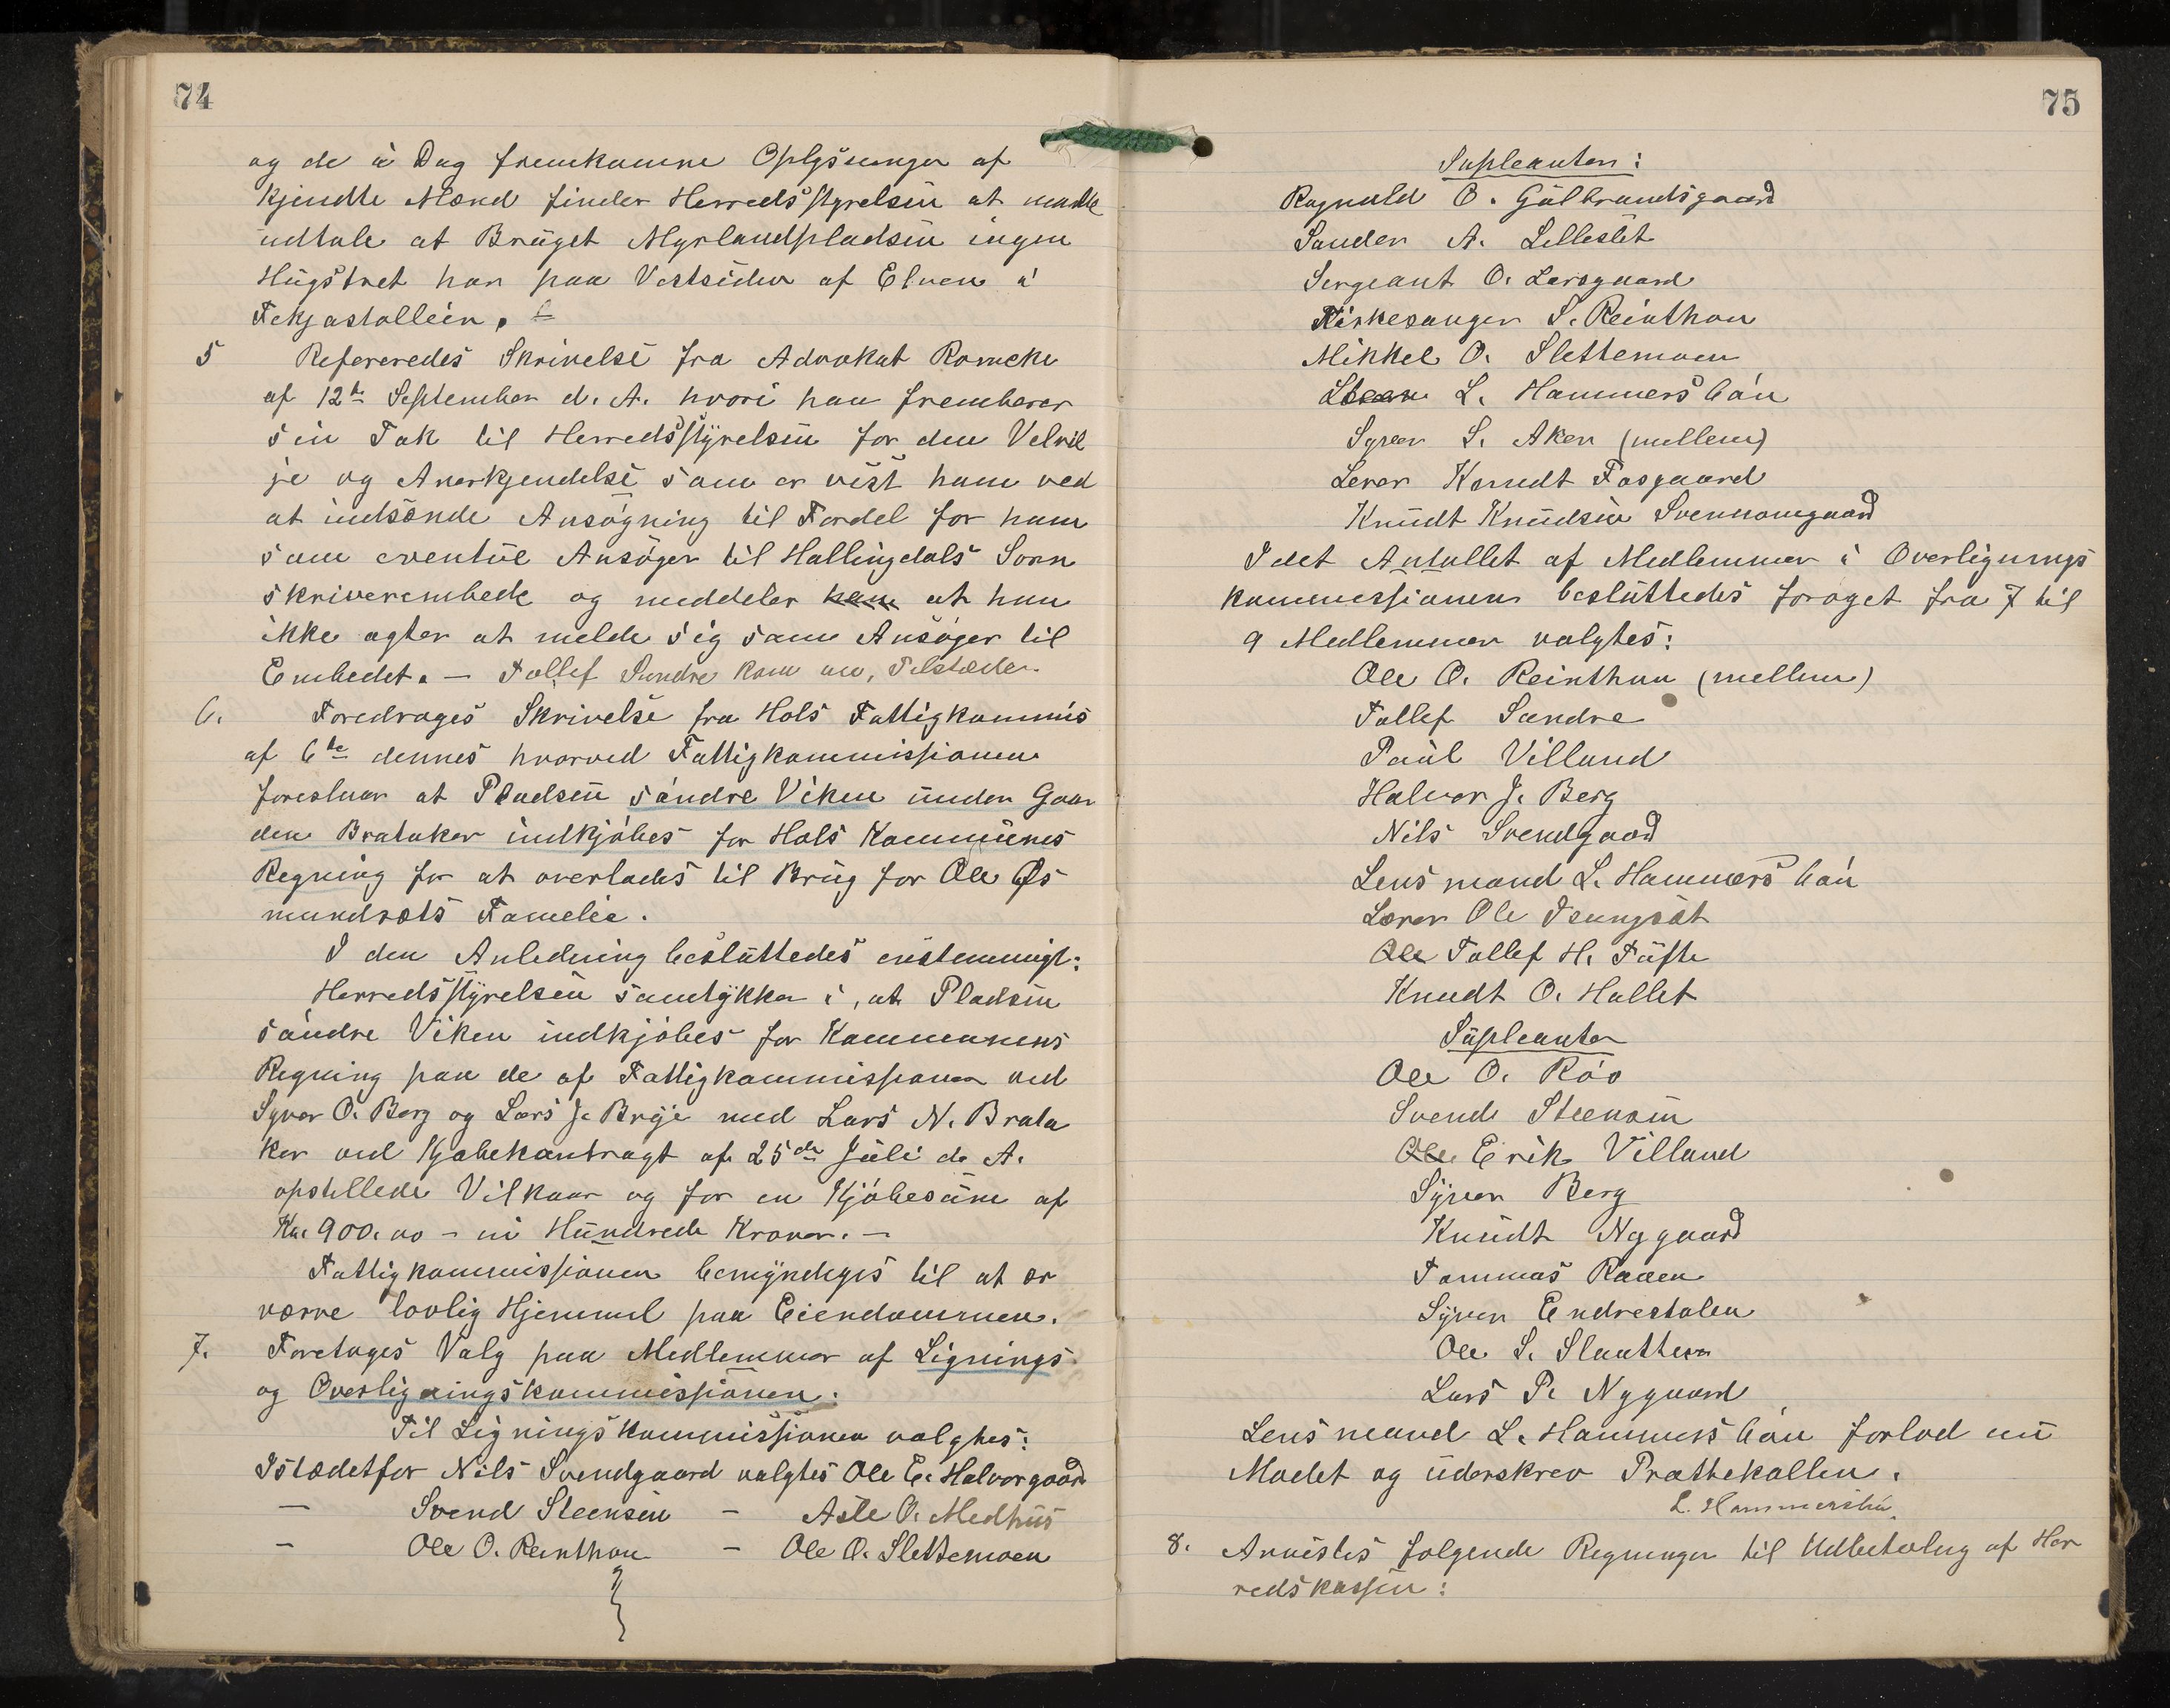 74
og de i Dag fremkomne Oplysninger af
kjendte Mænd finder Herredsstyrelsen at maatte
udtale at Bruget Myrlandpladsen ingen
Hugstret har paa Vestsiden af Elven i
Fekjastølleien.
5 Refereredes Skrivelse fra Advokat Romcke
af 12te September d. A. hvori han frembærer
sin Tak til Herredsstyrelsen for den Velvil
je og Anerkjendelse som er vist ham ved
at indsende Ansøgning til Fordel for ham
som eventuel Ansøger til Hallingdals Soren
skriverembede og meddeler ham at han
ikke agter at melde sig som Ansøger til
Embedet. — Tollef Sundre kom nu, Tilstede.
6. Foredroges Skrivelse fra Hols Fattigkommis
af 6te dennes hvorved Fattigkommissionen
foreslaar at Pladsen søndre Viken under Gaar
den Brataker indkjøbes for Hols Kommunes
Regning for at overlades til Brug for Ole Øs
mundsøts Familie.
I den Anledning besluttedes enstemmigt:
Herredsstyrelsen samtykker i, at Pladsen
søndre Viken indkjøbes for Kommunens
Regning paa de af Fattigkommissionen ved
Syver O. Berg og Lars J. Brøje med Lars N. Brata
ker ved Kjøbekontragt af 25de Juli d. A.
opstillede Vilkaar og for en Kjøbesum af
Kr. 900.00 – ni Hundrede Kroner. –
Fattigkommissionen bemyndiges til at er
verve lovlig Hjemmel paa Eiendommen.
7. Foretoges Valg paa Medlemmer af Lignings
og Overligningskommissionen:
Til Ligningskommissionen valgtes:
Istedetfor Nils Svendgaard valgtes Ole E. Halvorgaard
— Svend Steensen — Asle O. Medhus
— Ole O. Reinthon — Ole O. Slettemoen
75
Supleanter:
Ragnvald O. Gulbrandsgaard
Sander A. Lilleslet
Sergeant O. Larsgaard
Kirkesanger S. Reinthon
Mikkel O. Slettemoen
L. Hammersbøn
Syver S. Aker (mellem)
Lærer Knudt Fosgaard
Knudt Knudsen Svennomgaard
Idet Antallet af Medlemmer i Overlignings
kommissionen besluttedes forøget fra 7 til
9 Medlemmer valgtes:
Ole O. Reinthon (mellem)
Tollef Sundre
Paul Villand
Halvor J. Berg
Nils Svendgaard
Lensmand L. Hammersbøn
Lærer Ole Tsungsøt
Ole Tollef H. Tufte
Knudt O. Hallet
Supleanter
Ole O. Røo
Svend Steensen
Ole Erik Villand
Syver Berg
Knudt Nygaard
Tommas Raaen
Syver Endrestølen
Ole S. Slaatthem
Lars P. Nygaard
Lensmand L. Hammersbøn forlod nu
Mødet og underskrev Prøttekollen.
L. Hammersbøn.
8. Anvistes følgende Regninger til Udbetaling af Her
redskassen: